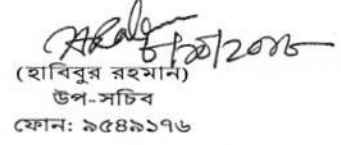 (হাবিবুর রহমান)
উপ-সচিব
ফোন: ৯৫৪৯১৭৬